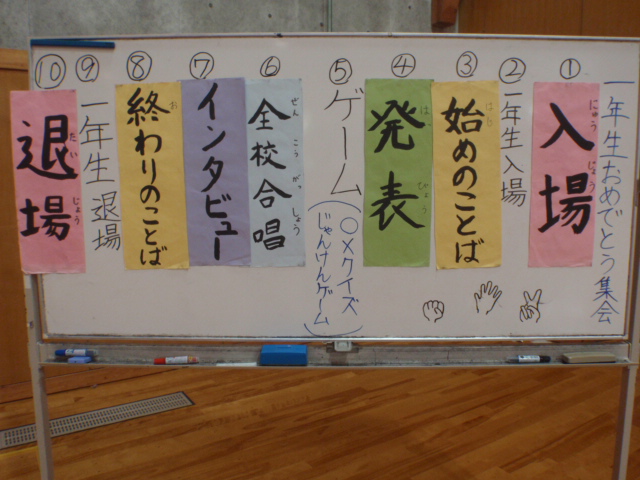 一年生おめでとう集会
① 入場 にゅうじょう
② 一年生入場
③ 始めのことば はじ
④ 発表 はっぴょう
⑤ ゲーム
(〇×クイズ
じゃんけんゲーム)
⑥ 全校合唱 ぜんこうがっしょう
⑦ インタビュー
⑧ 終わりのことば お
⑨ 一年生 退場
⑩ 退場 たいじょう